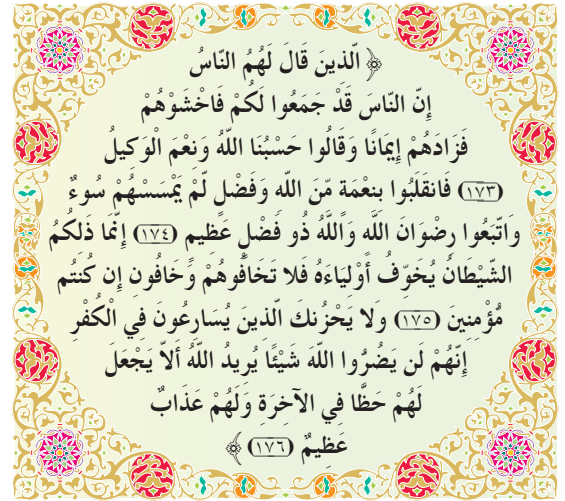 ﴿ الّذين قَالَ لَهُمُ النّاسُ
إِنّ النّاسَ قَدْ جَمَعُوا لَكُمْ فَاخْشَوْهُمْ
فَزَادَهُمْ إِيمَانًا وَقَالُوا حَسْبُنَا اللّهُ وَنِعْمَ الْوَكِيلُ
(١٧٣) فَانقَلَبُوا بِنعْمَة مّنَ اللّه وَفَضْلٍ لّمْ يَمْسَسْهُمْ سُوءٌ
وَاتّبَعُوا رِضْوَانَ اللّه وَاللّهُ ذُو فَضْلٍ عَظِيمٍ (١٧٤) إِنّمَا ذَلكُمُ
الشّيْطَانُ يُخَوّفُ أَوْليَاءَهُ فَلا تَخَافُوهُمْ وَخَافُونِ إِن كُنتُم
مُؤْمِنِينَ (١٧٥) وَلا يَحْزُنكَ الّذينَ يُسَارعُونَ في الْكُفْرِ
إِنّهُمْ لَن يَضُرُّوا اللّهَ شَيْئًا يُرِيدُ اللّهُ أَلاّ يَجْعَلَ
لَهُمْ حَظّا في الآخِرَةِ وَلَهُمْ عَذَابٌ
عَظِيمٌ (١٧٦) ﴾